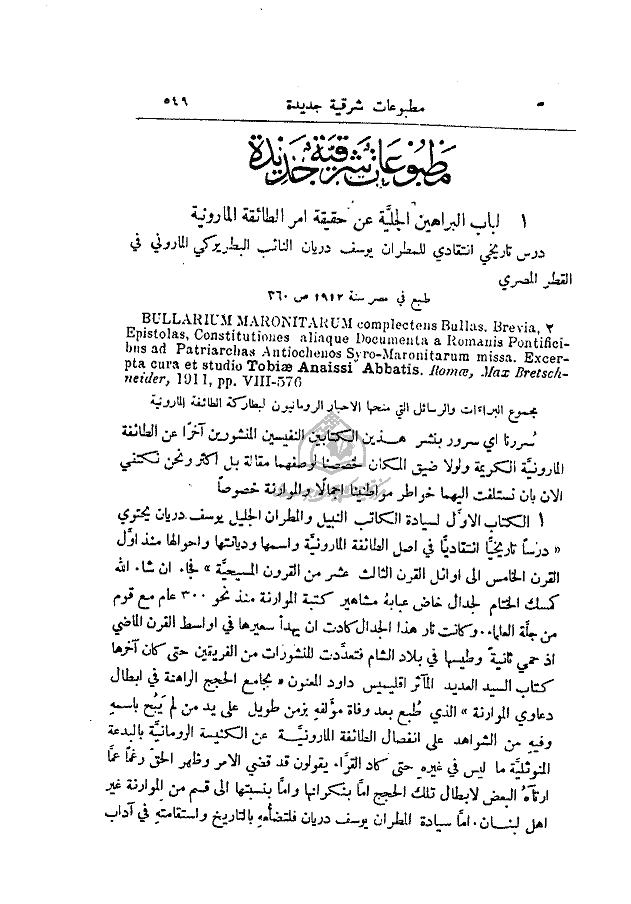 مطبوعات شرقية جديدة ٥٤٩
مطبوعات شرقية جديدة
١ لباب البراهين الجليَّة عن حقيقة امر الطائفة المارونية
درس تاريخي انتقادي للمطران يوسف دريان النائب البطريركي الماروني في
القطر المصري
طبع في مصر سنة ١٩١٢ ص ٣٦٠
BULLARIUM MARONITARUM complectens Bullas. Brevia, ٢
Epistolas, Constitutiones aliaque Documenta a Romanis Pontifici-
bus ad Patriarchas Antiochenos Syro-Maronitarum missa. Excer-
pta cura et studio Tobiæ Anaissi Abbatis. Romæ, Max Bretsch-
neider, 1911, pp. VIII-576
مجموع البراءات والرسائل التي منحها الاحبار الرومانيون لبطاركة الطائفة المارونية
سُررنا اي سرور بنشر هذين الكتابين النفيسين المنشورين آخرًا عن الطائفة
المارونية الكريمة ولولا ضيق المكان لخصصنا لوصفهما مقالة بل اكثر ونحن نكتفي
الان بان نستلفت اليهما خواطر مواطنينا اجمالًا والموارنة خصوصاً
١ الكتاب الاوَّل لسيادة الكاتب النبيل والمطران الجليل يوسف دريان يحتوي
« درسًا تاريخيًّا انتقاديًّا في اصل الطائفة المارونيَّة واسمها وديانتها واحوالها منذ اوَّل
القرن الخامس الى اوائل القرن الثالث عشر من القرون المسيحيَّة » فجاء ان شاء الله
كمسك الختام لجدال خاض عبابهُ مشاهير كتبة الموارنة منذ نحو ٣٠٠ عام مع قوم
من جلَّة العلماء. وكانت نار هذا الجدال كادت ان يهدأ سعيرها في اواسط القرن الماضي
اذ حمي ثانيةً وطيسها في بلاد الشام فتعدَّدت المنشورات من الفريقين حتى كان آخرها
كتاب السيد العديد المآثر اقليميس داود المعنون « بجامع الحجج الراهنة في ابطال
دعاوي الموارنة » الذي طُبع بعد وفاة مؤلفهِ بزمن طويل على يد من لم يَبُح باسمهِ
وفيهِ من الشواهد على انفصال الطائفة المارونيَّة عن الكنيسة الرومانيَّة بالبدعة
المنوثليَّة ما ليس في غيرهِ حتى كاد القرَّاء يقولون قد قضي الامر وظهر الحق رغمًا عمَّا
ارتآهُ البعض لابطال تلك الحجج امَّا بنكرانها وامَّا بنسبتها الى قسم من الموارنة غير
اهل لبنان. امَّا سيادة المطران يوسف دريان فلتضلُّعهِ بالتاريخ واستقامتهِ في آداب